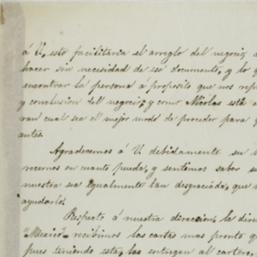 á U, esto facilitaria el arreglo del negocio
hacer sin necesidad de ese documento, y lo q
encontrar la persona a proposito que nos rep
y conclusion del negocio; y como Nicolas está e
ran cual sea el mejor modo de proceder para q
antes.
Agradecemos á U debidamente su
recernos en cuanto pueda, y sentimos saber su
nuestra sea igualmente tan desgraciada, que
ayudarlo.
Respecto á nuestra direccion, la dire
"Mexico" recibimos las cartas mas pronto q
pues teniendo esta, las entregan al cartero,